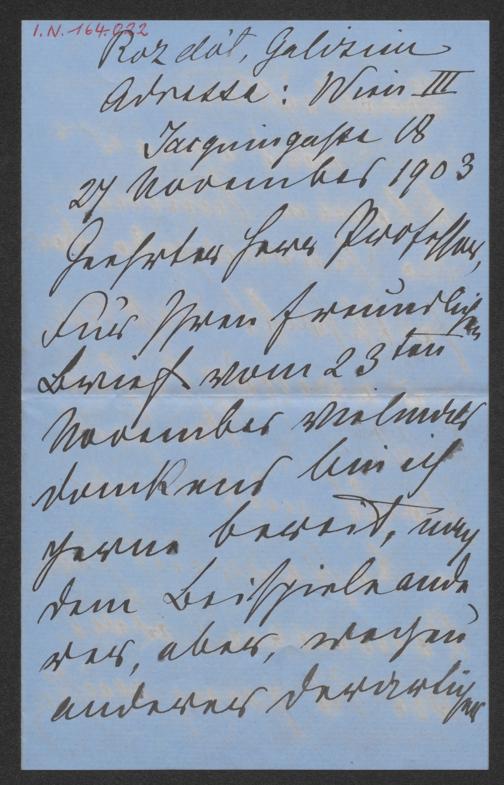 I.N. 164.022
Rozdół, Galizien
Adresse: Wien III
Jacquingasse 18
27 November 1903
Geehrter Herr Professor,
Für Ihren freundlichen
Brief vom 23ten
November vielmals
dankend bin ich
gerne bereit, nach
dem Beispiele ande
rer, aber, wegen
anderer derartiger